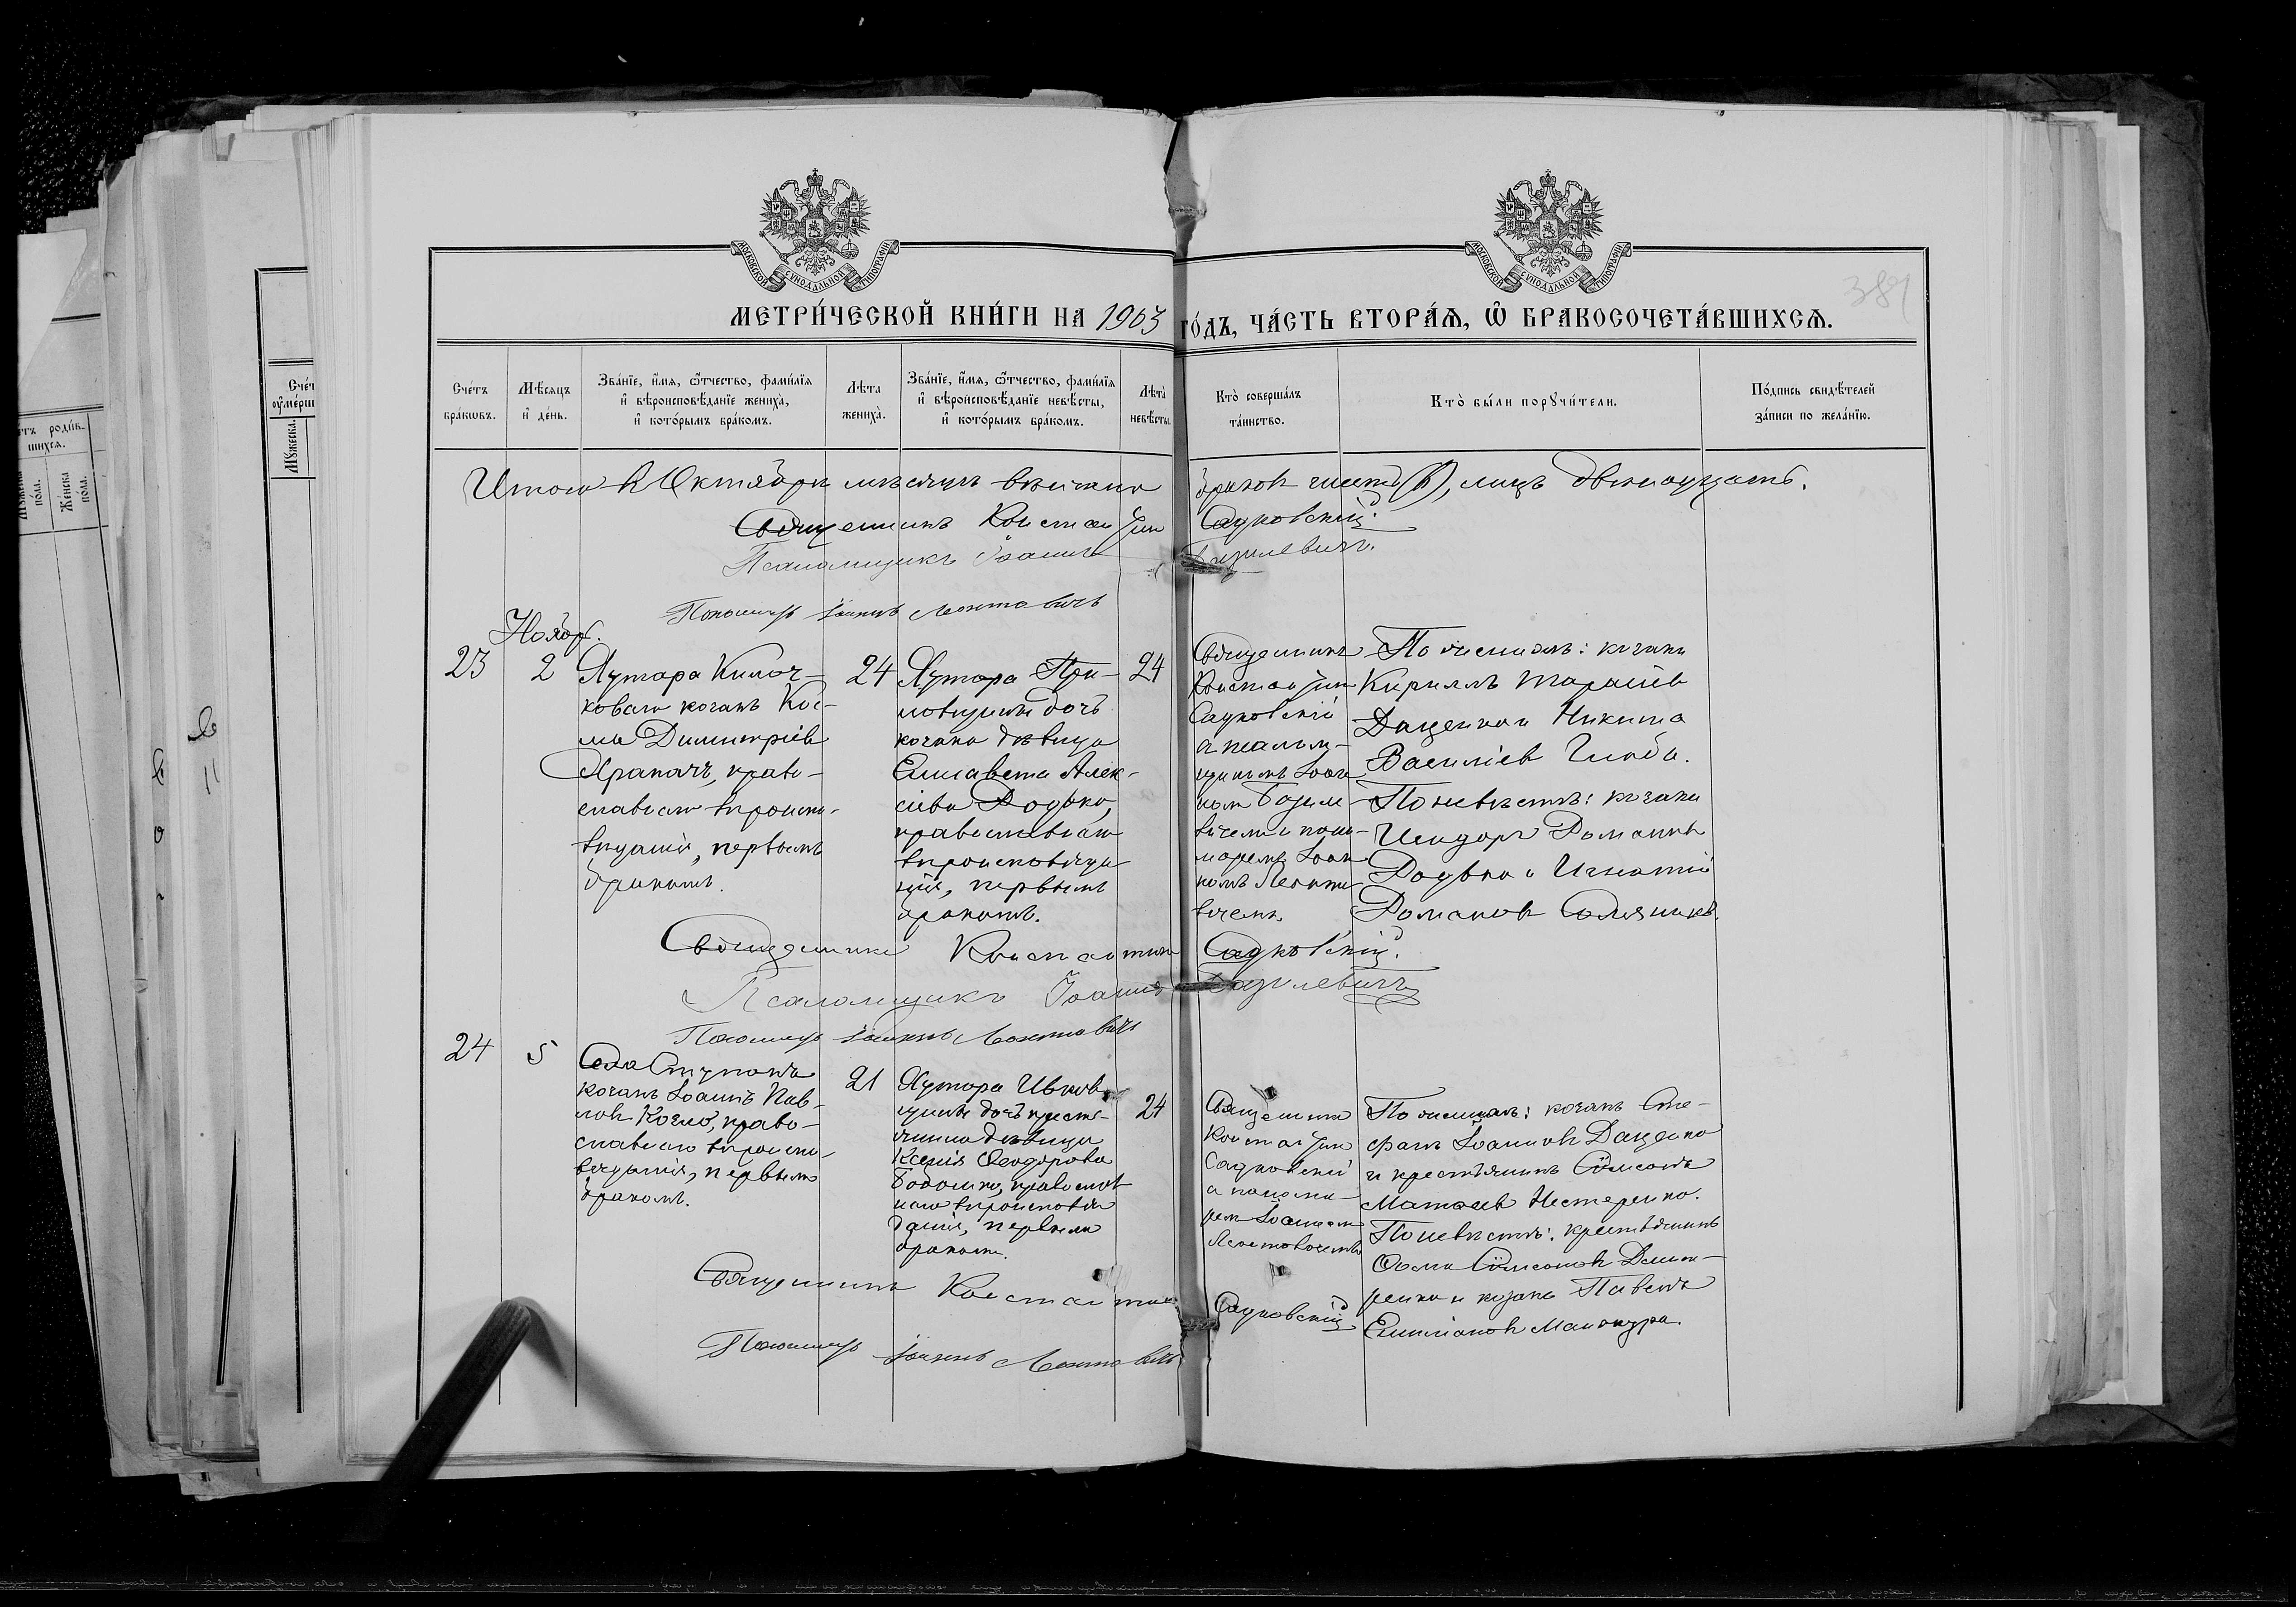 МОСКОВСКОЙ СѴНОДАЛЬНОЙ ТИПОГРАФІИ
МОСКОВСКОЙ СѴНОДАЛЬНОЙ ТИПОГРАФІИ
МЕТРИ́ЧЕСКОЙ КНИ́ГИ НА 1903 ГО́ДЪ, ЧА́СТЬ ВТОРА́Ѧ, Ѡ҆ БРАКОСОЧЕТА́ВШИХСѦ.
Сче́тъ бра́кѡвъ.
Мѣ́сяцъ и҆ де́нь.
Зва́нїе, и҆́мя, ѻ҆́тчество, фами́лїя и҆ вѣроисповѣ́данїе жениха̀, и҆ кото́рымъ бра́комъ.
Лѣ́та жениха̀.
Зва́нїе, и҆́мя, ѻ҆́тчество, фами́лїя и҆ вѣроисповѣ́данїе невѣ́сты, и҆ кото́рымъ бра́комъ.
Лѣ́та невѣ́сты.
Кто̀ соверша́лъ та́инство.
Кто̀ бы́ли порꙋчи́тели.
По́дпись свидѣ́телей за́писи по жела́нїю.
Итого въ Октябрѣ мѣсяцѣ вѣнчано браковъ шесть (6), лицъ двѣнадцать.
Священникъ Константинъ Садковскій.
Псаломщикъ Іоаннъ Базилевичъ.
Пономарь Іоаннъ Леонтовичъ
Ноябр.
23
2
Хутора Килоч-
коваго козакъ Кос-
ма Димитріевъ
Храпачъ, право-
славнаго вѣроиспо-
вѣданія, первымъ
бракомъ.
24
Хутора При-
мовщины дочь
козака дѣвица
Елисавета Алек-
сіева Додока,
православнаго
вѣроисповѣда
нія, первымъ
бракомъ.
24
Священникъ
Константинъ
Садковскій
с псалом-
щикомъ Іоан
номъ Базиле-
вичемъ и поно-
маремъ Іоан
номъ Леонто
вичемъ.
По женихѣ: козаки
Кириллъ Тарасіевъ
Даценко и Никита
Василіев
По невѣстѣ: козаки
Исидоръ Романовъ
Додока и Игнатій
Романовъ Соляникъ.
Священникъ Константинъ Садковскій.
Псаломщикъ Іоаннъ Базилевичъ
Пономарь Іоаннъ Леонтовичъ
24
5
Села Ступокъ
козакъ Іоаннъ Пав-
ловъ Козло, право-
славнаго вѣроиспо-
вѣданія, первымъ
бракомъ.
21
Хутора Ивков
щины дочь кресть-
янина дѣвица
Ксенія Ѳеодорова
православ
наго вѣроисповѣ
данія, первымъ
бракомъ.
24
Священникъ
Константинъ
Садковскій
с понома-
ремъ Іоанномъ
Леонтовичемъ
По женихѣ: козакъ Сте-
фанъ Іоанновъ Даценко
и крестьянинъ Сѵмеонъ
Матѳіевъ Нестеренко.
По невѣстѣ: крестьянинъ
Ѳома Сѵмеоновъ
и козакъ Павелъ
Емиліановъ Манжура.
Священникъ Константинъ Садковскій
Пономарь Іоаннъ Леонтовичъ